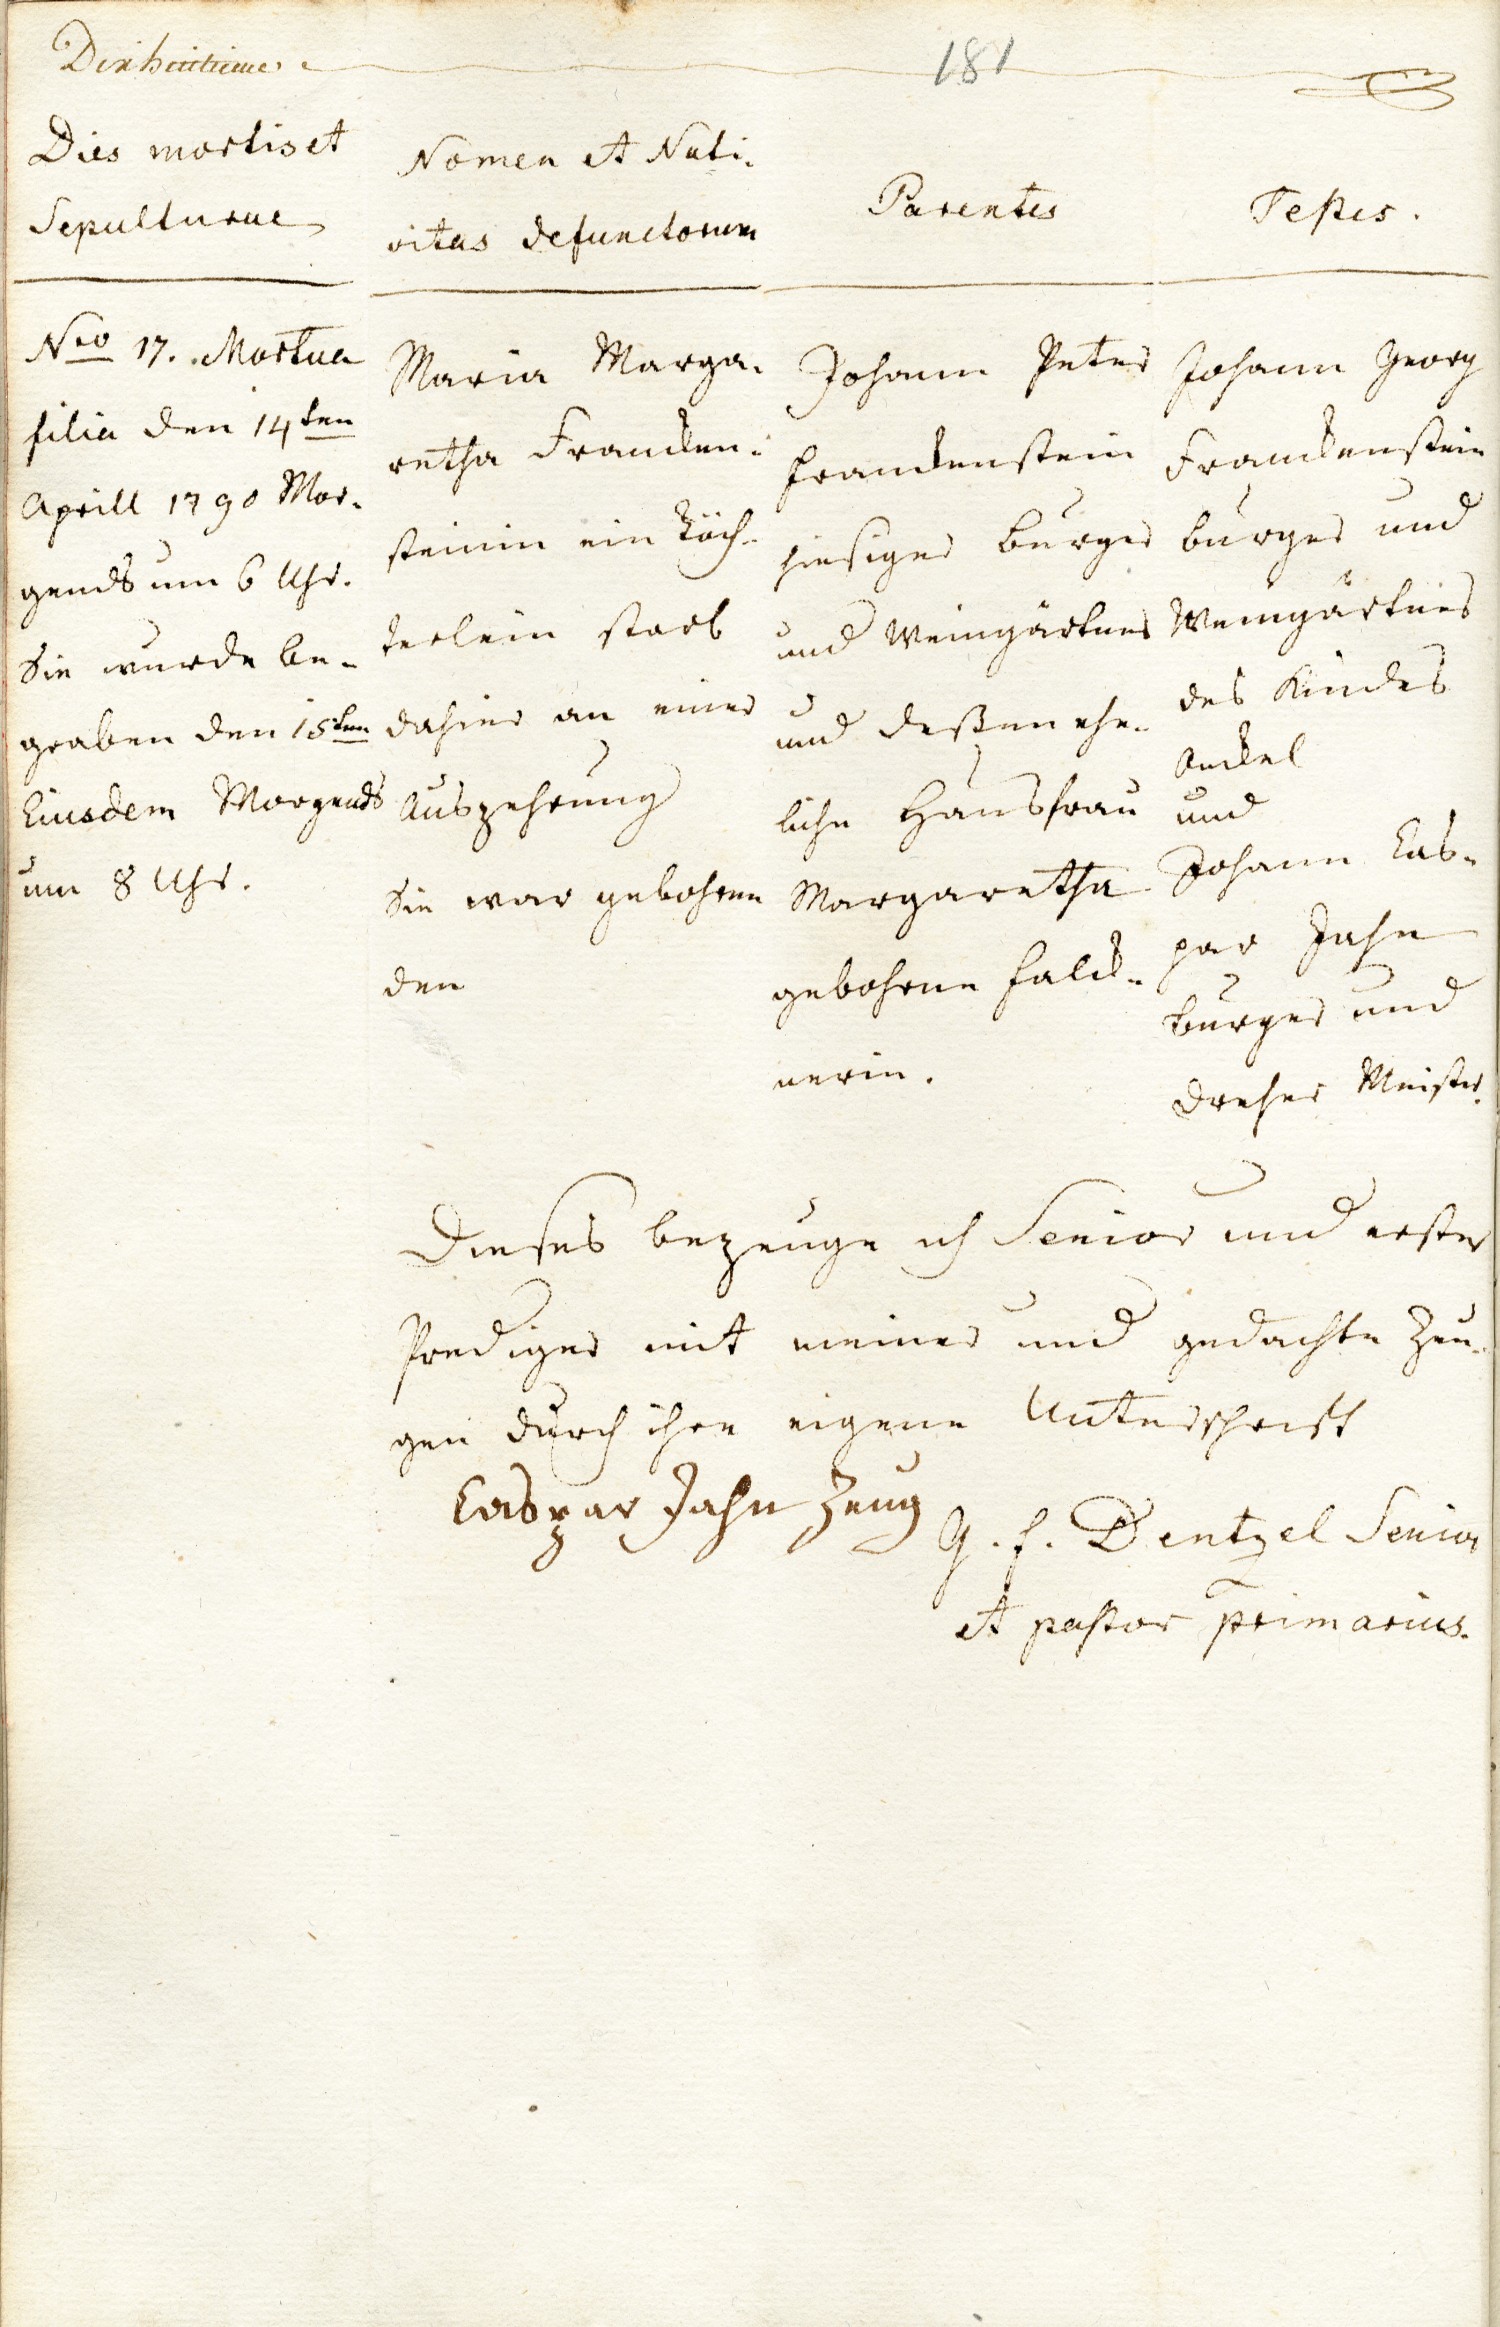 181
Dies mortis et
Sepulturae
Nomen et Nati-
vitas defunctorum
Parentes
Testes.
Nro 17. Mortua
filia den 14ten
Aprill 1790 Mor-
gends um 6 Uhr.
Sie wurde be-
graben den 15ten
Eiusdem Morgends
um 8 Uhr.
Maria Marga-
retha Francken-
steinin ein Töch-
terlein starb
dahier an einer
Auszehrung
Sie war gebohren
den
Johann Peter
Franckenstein
hiesiger burger
und Weingärtner
und deßen ehe-
liche Hausfrau
Margaretha
gebohrne Falck-
nerin.
Johann Georg
Franckenstein
burger und
Weingärtner
des Kindes
Onckel
und
Johann Cas-
par Jahn
burger und
Dreher Meister.
Dieses bezeuge ich Senior und erster
Prediger mit meiner und gedachte Zeu-
gen durch ihre eigene Unterschrift
Caspar Jahn Zeug
G. F. Dentzel Senior
et pastor primarius.